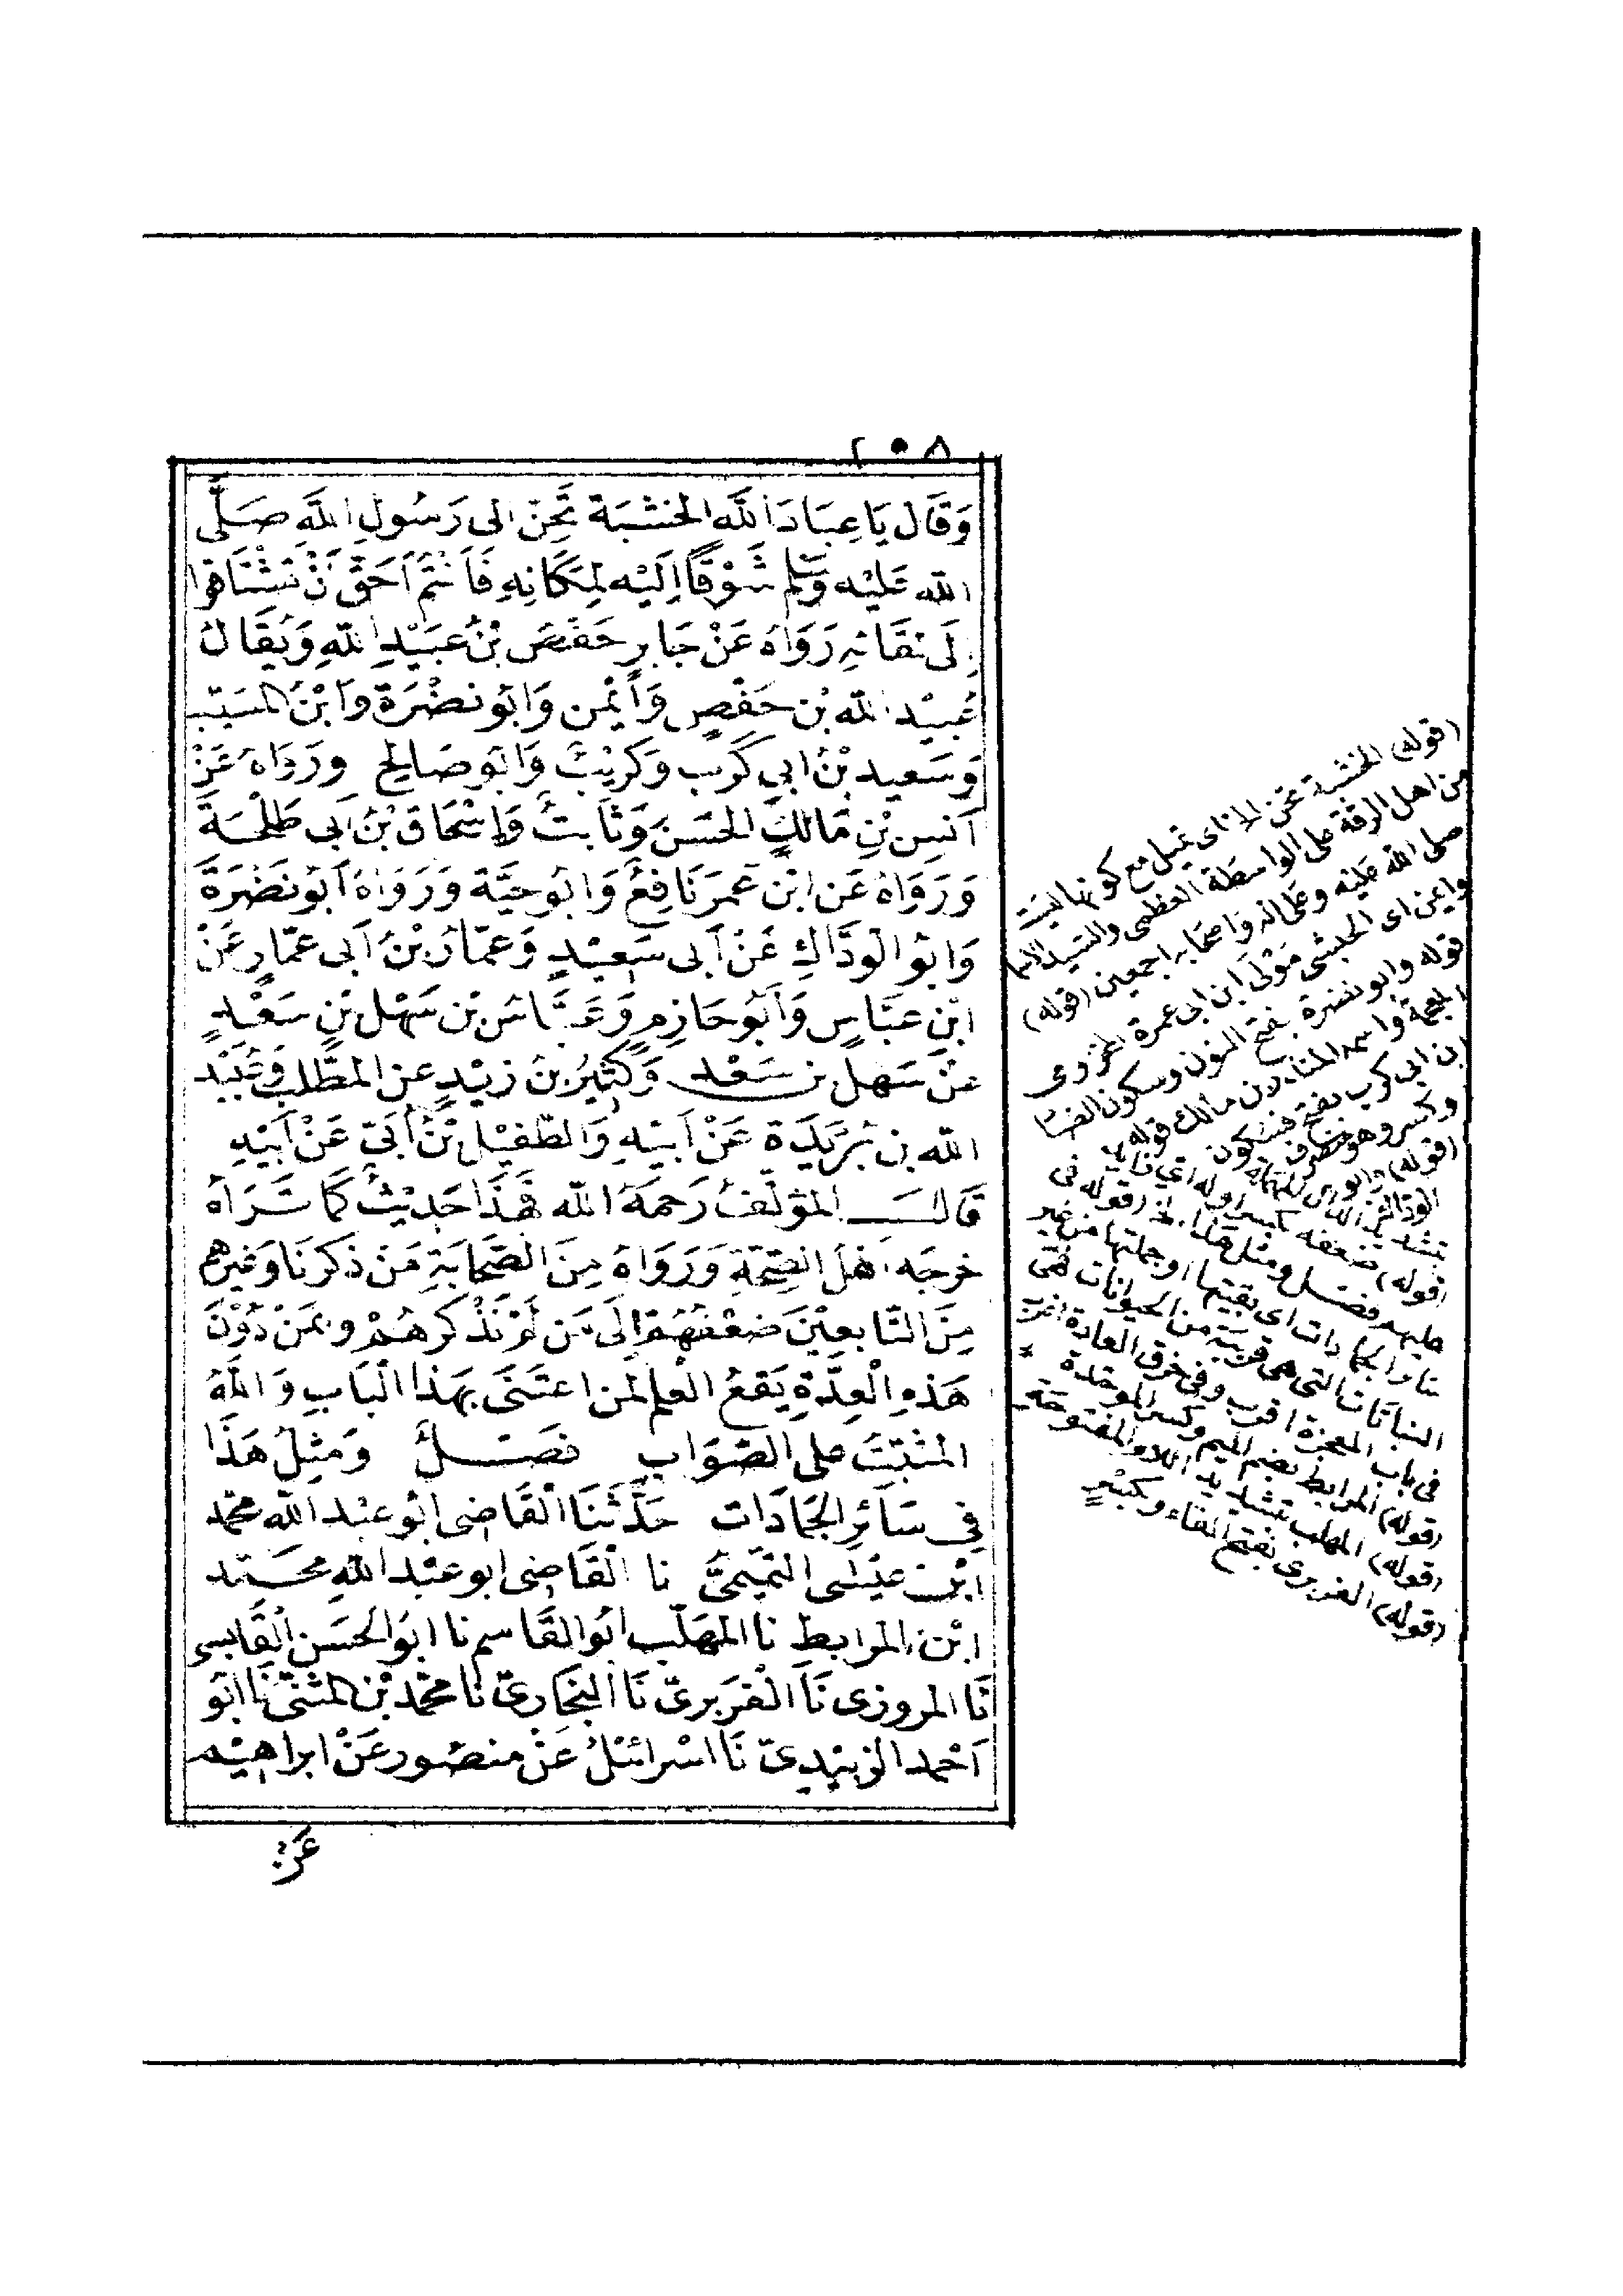 ٢٠٨
وَقَالَ يَا عِبَادَ اللَّهِ الخَشَبَةُ تَحِنُّ الى رَسُولِ اللَّهِ صَلَّى
الله عَلَيْه وَسلم شَوْقًا اِلَيْه لِمَكَانِهِ فَاَنْتُمْ اَحَقُّ اَنْ تَشْتَاقُوا
اِلَى لِقَائِهِ رَوَاهُ عَنْ جَابِرٍ حَفْصُ بْنُ عُبَيْدِ اللّهِ وَيُقَالُ
عُبَيْد الله بْن حَفْصٍ وَأَيْمَن وَابُو نَضْرَة وَابْنُ المُسَيّب
وَسَعِيد بْنُ ابِي كَرِب وَكُرَيْبٌ وَابُو صَالِح وَرَوَاهُ عَنْ
اَنَسِ بْنِ مَالِكٍ الحَسَنُ وَثَابِتٌ وَاِسْحَاق بْنُ اَبِي طَلْحَةَ
وَرَوَاهُ عَن ابْن عُمَرَ نَافِعٌ وَابُو حَيَّةَ وَرَوَاهُ اَبُو نَضْرَةَ
وَابُو الوَدَّاكِ عَنْ اَبى سَعِيْدٍ وَعَمَّارُ بْنُ اَبى عمَّارٍ عَنْ
ابْنِ عَبَّاسٍ وَاَبُو حَازِمٍ وَعَبَّاسُ بْن سَهْل بْنِ سَعْدٍ
عَنْ سَهل بن سَعْد وَكَثِيرُ بْنُ زَيْدٍ عن المطَّلب وَعَبْد
الله بن بُرَيْدَة عَنْ اَبِيْهِ وَالطُّفَيْل بْنُ اُبَىّ عَنْ اَبِيْهِ
قَالَ المؤَلّفُ رَحِمَهُ الله فَهَذَا حَدِيْثٌ كَمَا تَرَاهُ
خرجَه اهْلُ الصِّحَّةِ وَرَوَاهُ مِنَ الصَّحَابَةِ مَنْ ذَكَرْنَا وَغيرهم
مِنَ التَّابِعِيْنَ ضِعْفُهُمْ اِلَى مَن لَمْ نَذْكُرهُمْ وبمَنْ دُوْنَ
هَذِهِ الْعِدَّةِ يَقَعُ الْعِلمُ لِمَن اعْتَنَى بِهَذَا الْبَابِ وَاللهُ
المثَبِّتُ على الصَّوَابِ فَصْلٌ وَمِثلُ هَذَا
فِي سَائِرِ الجَمَادَات حَدَّثَنَا القَاضِى ابُو عَبْد الله محمد
ابْن عِيْسَى التَّمِيمِىُّ نا الْقَاضِى ابو عَبْد اللهِ محمد
ابْن المرابط نا المُهَلَّب ابُو القَاسِم نا ابُو الحَسَن القَابِسى
نَا المروزى نَا الْفَرَبْرِىّ نَا البُخَارِىّ نا محمّد بْن المثَنّى نَا ابُو
اَحْمد الزبَيْدِىّ نَا اسْرائيْلُ عَنْ منصُور عَنْ ابراهِيْم
عَنْ
(قوله) الخشبة تحن الخ اى تميل مع كونها ليست
من اهل الرقة على الواسطة العظمى والسيد
صلى الله عليه وعلى اله واصحابه اجمعين (قوله)
وايمن اى الحبشى مولى ابن ابى عمرة المخزومى
قوله وابو نضرة بفتح النون وسكون
المعجمة واسمه المنذر بن مالك قوله
ابن ابى كرب بفتح فسكون
(قوله) وابو
(قوله) ضعفه بكسر اوله اى
فصل ومثل هذا الخ (قوله فى
سائر الجمادات اى بقيتها او جملتها من غير
النباتات التى هى قريبة من الحيوانات فهى
فى باب المعجزة اقرب وفى خرق العادة اغرب
(قوله) المرابط بضم الميم وكسر الموحدة
(قوله) المهلب بتشديد اللام المفتوحة
(قوله) الفربرى بفتح الفاء وبكسر